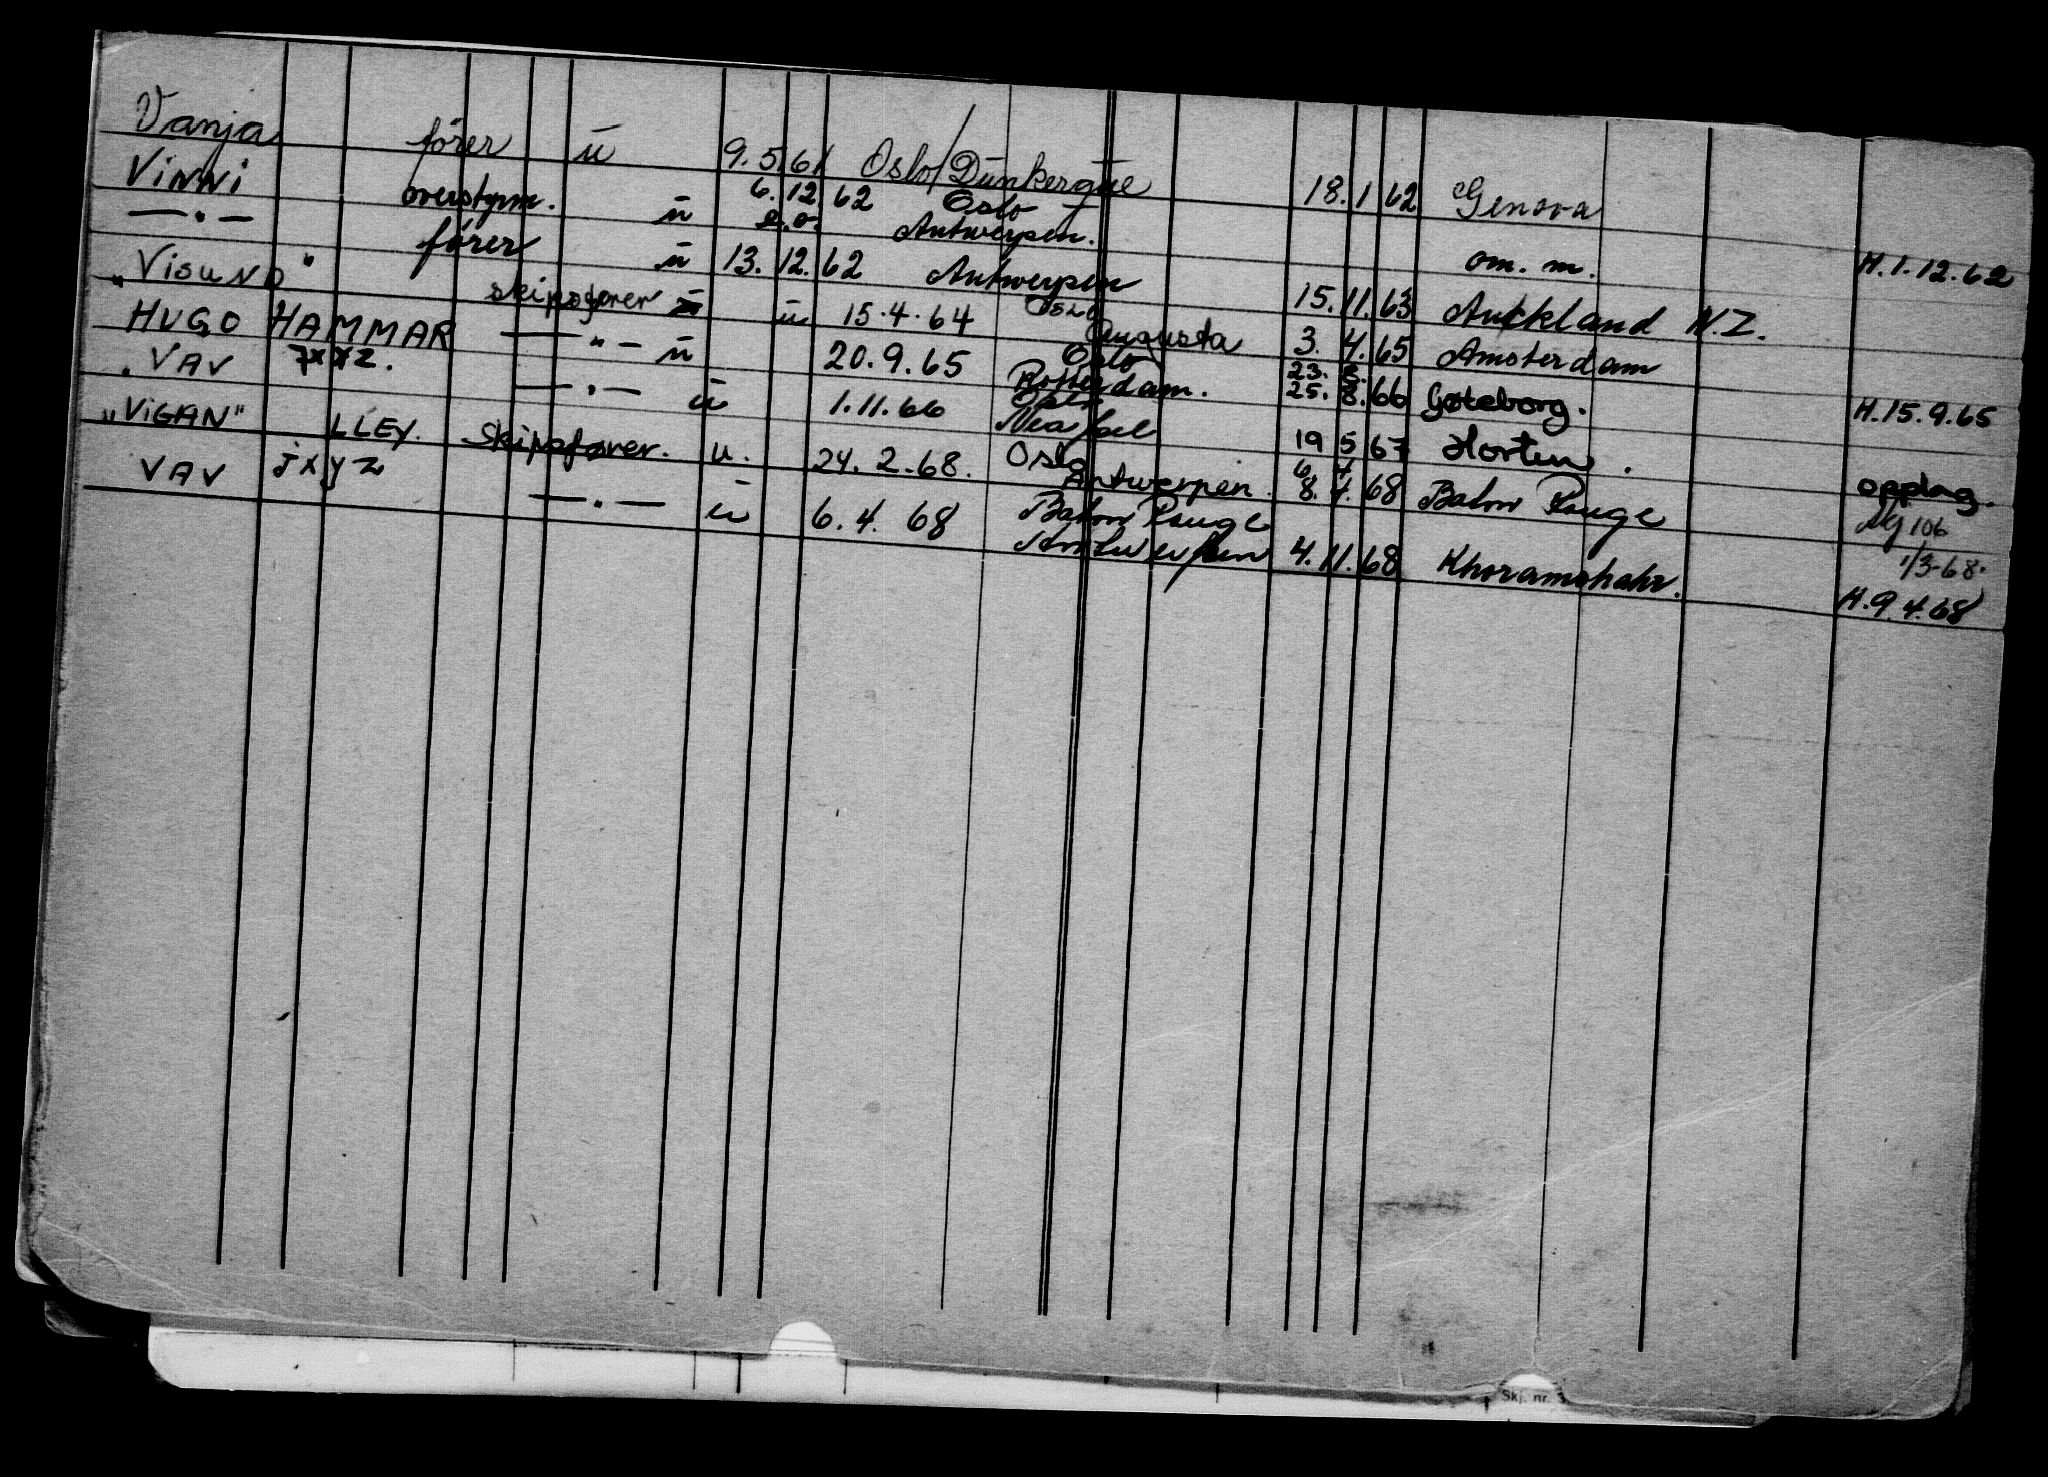 Vanja fører u 9.5.61 Oslo/Dunkerque 18.1.62 Genova
VINNI overstyrm. u 6.12.62 Oslo Antwerpen. om. m. H.1.12.62
— " — fører u 13.12.62 Antwerpen 15.11.63 Auckland N.Z.
"VISUND" skipsfører u 15.4.64 Oslo Augusta 3.4.65 Amsterdam
HUGO HAMMAR — " — u 20.9.65 Oslo Rotterdam. 23.8. 25.8.66 Gøteborg. H.15.9.65
VAV JXYZ. — " — u 1.11.66 Oslo Neapel 19 5 67 Horten. opplag.
"VIGAN" LLEY. Skipsfører. u. 24.2.68. Oslo Antwerpen. 6 4 8.4.68 Baton Rouge 106 1/3-68.
VAV JXYZ — " — u 6.4.68 Baton Rouge Antwerpen 4.11.68 Khoramshahr. H.9.4.68
Skj. nr.